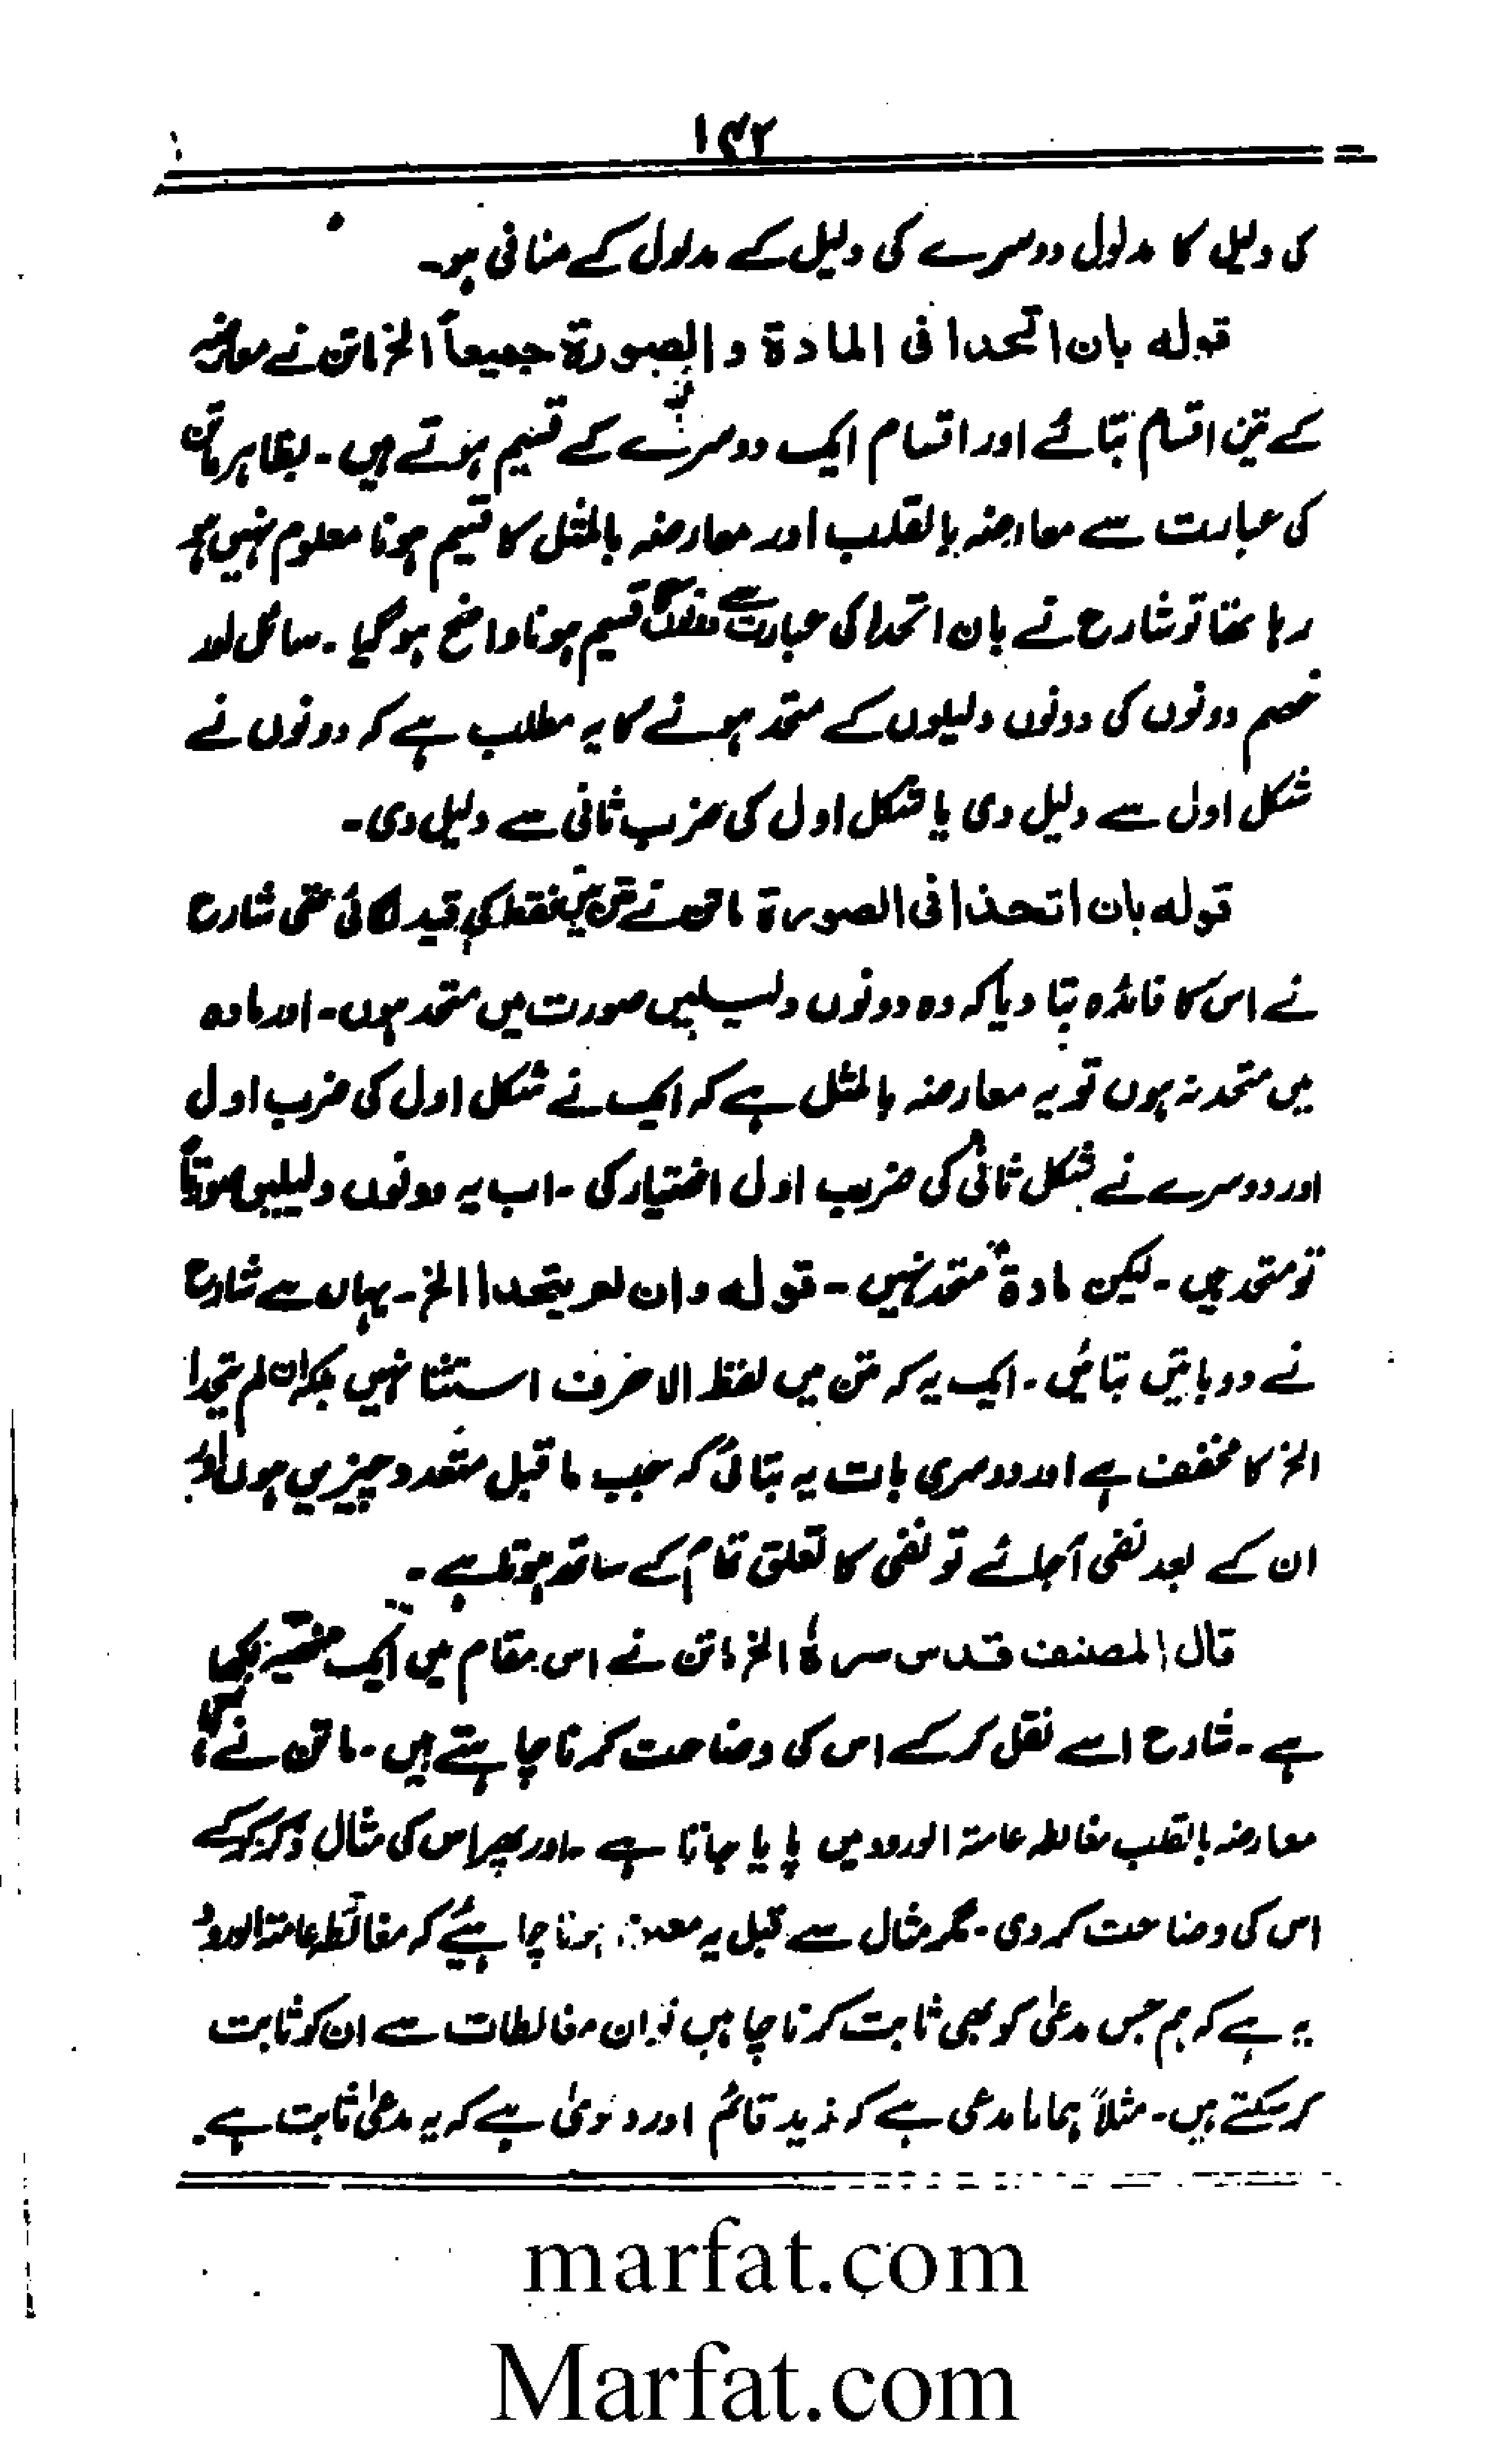 ۱۴۲
کی دلیل کا مدلول دوسرے کی دلیل کے مدلول کے منافی ہو۔
قولہ بان اتحدا فی المادۃ و الصورۃ جمیعاً الخ ماتن نے معارضہ
کے تین اقسام بتائے اور اقسام ایک دوسرے کے قسیم ہوتے ہیں۔ بظاہر ماتن
کی عبارت سے معارضہ بالقلب اور معارضہ بالمثل کا قسیم ہونا معلوم نہیں ہو
رہا تھا تو شارح نے بان اتحدا کی عبارت سے دونوں کا قسیم ہونا واضح ہو گیا۔ سائل اور
خصم دونوں کی دونوں دلیلوں کے متحد ہونے کا یہ مطلب ہے کہ دونوں نے
شکل اول سے دلیل دی یا شکل اول کی ضرب ثانی سے دلیل دی۔
قولہ بان اتحدا فی الصورۃ ماتن نے متن میں فقط کی قید لگائی تھی شارح
نے اس کا فائدہ بتا دیا کہ وہ دونوں دلیلیں صورت میں متحد ہوں۔ اور مادہ
میں متحد نہ ہوں تو یہ معارضہ بالمثل ہے کہ ایک نے شکل اول کی ضرب اول
اور دوسرے نے شکل ثانی کی ضرب اول اختیار کی۔ اب یہ دونوں دلیلیں صورتاً
تو متحد ہیں۔ لیکن مادۃ متحد نہیں۔ قولہ وان لم یتحدا الخ۔ یہاں سے شارح
نے دو باتیں بتائیں۔ ایک یہ کہ متن میں لفظ الا حرف استثنا نہیں بلکہ ان لم یتحدا
الخ کا مخفف ہے اور دوسری بات یہ بتائی کہ جب ماقبل متعدد چیزیں ہوں اور
ان کے بعد نفی آجائے تو نفی کا تعلق تمام کے ساتھ ہوتا ہے۔
قال المصنف قدس سرہ الخ ماتن نے اس مقام میں ایک منہیہ لکھا
ہے۔ شارح اسے نقل کر کے اس کی وضاحت کرنا چاہتے ہیں۔ ماتن نے کہا
معارضہ بالقلب مغالطہ عامۃ الورود میں پایا جاتا ہے۔ اور پھر اس کی مثال ذکر کر کے
اس کی وضاحت کر دی۔ مگر مثال سے قبل یہ معلوم ہونا چاہیئے کہ مغالطہ عامتہ الورود
یہ ہے کہ ہم جس مدعیٰ کو بھی ثابت کرنا چاہیں تو ان مغالطات سے ان کو ثابت
کر سکتے ہیں۔ مثلاً ہمارا مدعی ہے کہ زید قائم اور دعویٰ ہے کہ یہ مدعیٰ ثابت ہے۔
marfat.com
Marfat.com